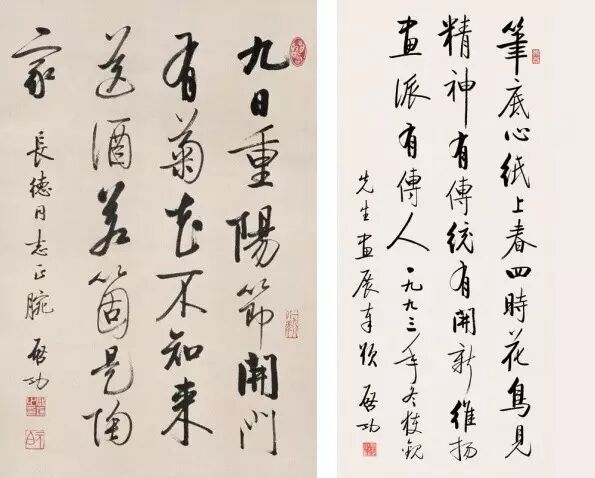 九日重陽節開門
有菊花不知來
送酒若箇是陶
家
長德同志正腕 啓功
筆底心紙上春四時花鳥見
精神有傳統有開新維揚
畫派有傳人 一九九三年冬獲觀
先生畫展奉頌 啓功